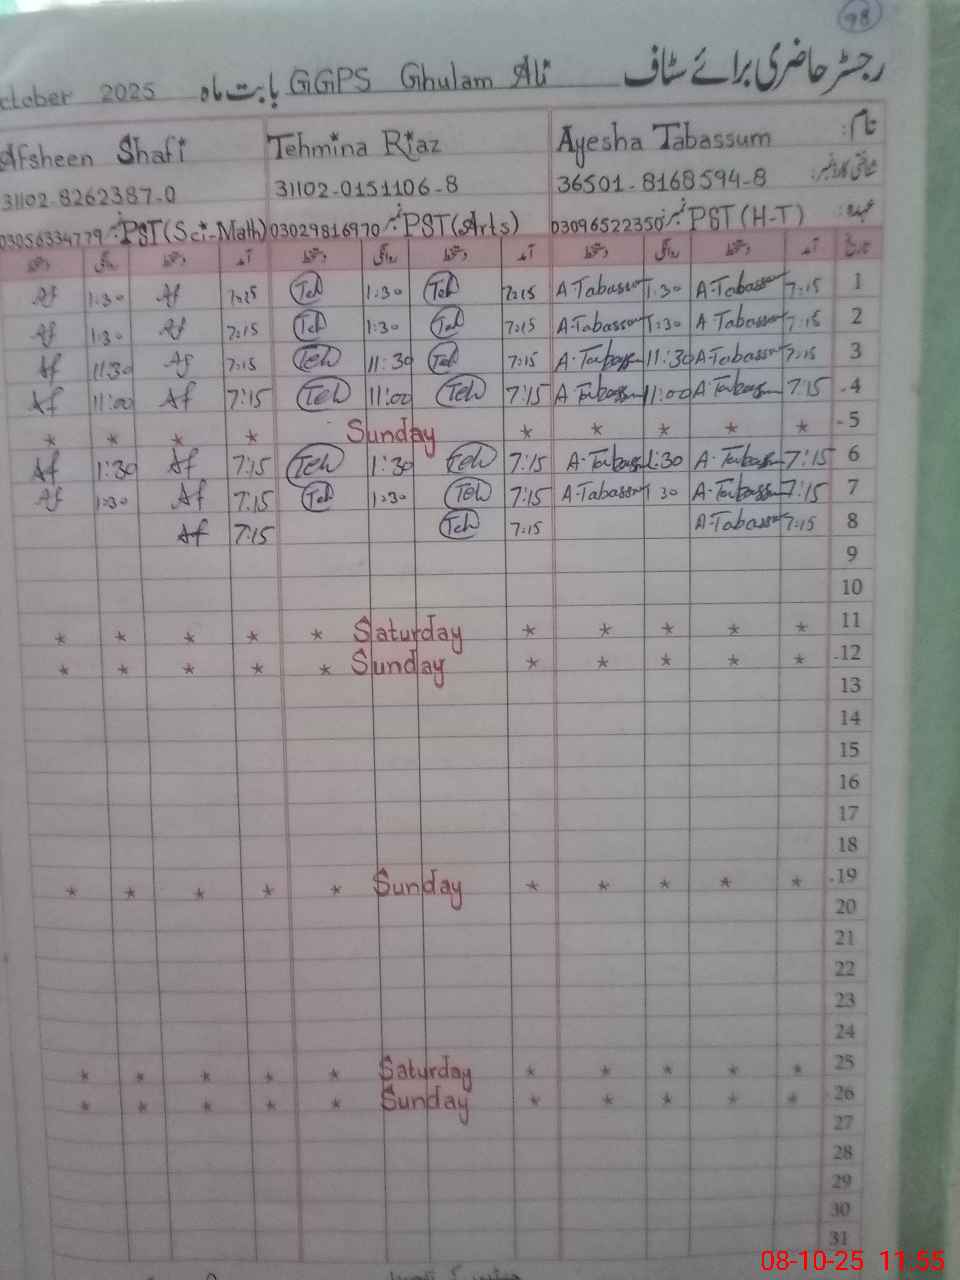 98
رجسٹر حاضری برائے سٹاف GGPS Ghulam Ali بابت ماہ ctober 2025
نام: Ayesha Tabassum Tehmina Riaz Afsheen Shafi
شناختی کارڈ نمبر: 36501-8168594-8 31102-0151106-8 31102-8262387-0
عہدہ: PST (H-T) 03096522350 PST (Arts) 03029816970 PST (Sci-Math) 03056334779
تاریخ آمد دستخط روانگی دستخط آمد دستخط روانگی دستخط آمد دستخط روانگی دستخط
1 7:15 A-Tabassum 1:30 A-Tabassum 7:15 Teh 1:30 Teh 7:15 Af 1:30 Af
2 7:15 A-Tabassum 1:30 A-Tabassum 7:15 Teh 1:30 Teh 7:15 Af 1:30 Af
3 7:15 A-Tabassum 11:30 A-Tabassum 7:15 Teh 11:30 Teh 7:15 Af 11:30 Af
4 7:15 A-Tabassum 11:00 A-Tabassum 7:15 Teh 11:00 Teh 7:15 Af 11:00 Af
5 * * * * * Sunday * * * *
6 7:15 A-Tabassum 1:30 A-Tabassum 7:15 Teh 1:30 Teh 7:15 Af 1:30 Af
7 7:15 A-Tabassum 1:30 A-Tabassum 7:15 Teh 1:30 Teh 7:15 Af 1:30 Af
8 7:15 A-Tabassum 7:15 Teh 7:15 Af
9
10
11 * * * * * Saturday * * * * *
12 * * * * * Sunday * * * * *
13
14
15
16
17
18
19 * * * * * Sunday * * * * *
20
21
22
23
24
25 * * * * * Saturday * * * * *
26 * * * * * Sunday * * * * *
27
28
29
30
31
08-10-25 11:55